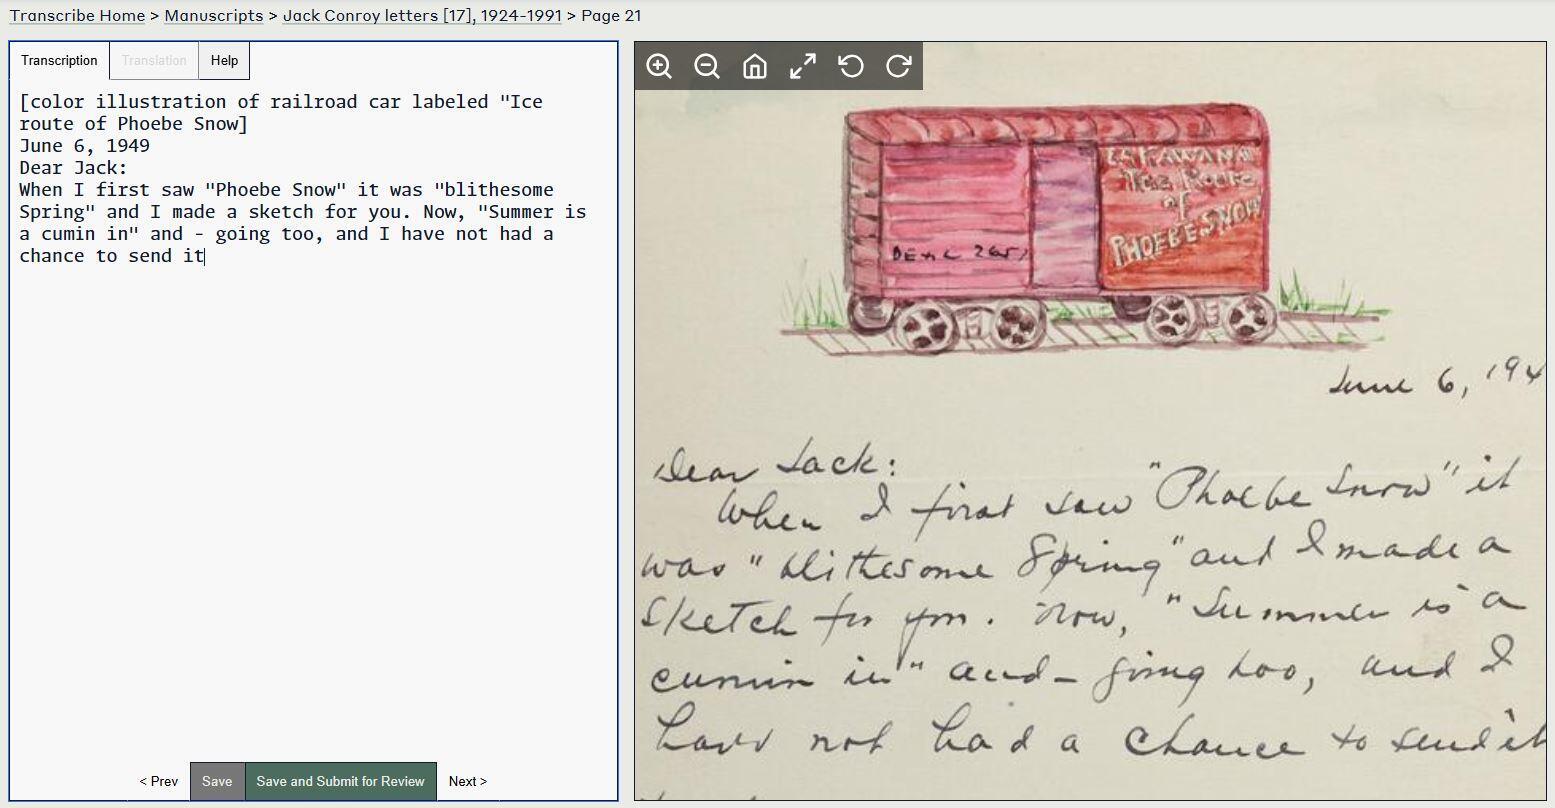 Transcribe Home > Manuscripts > Jack Conroy letters [17], 1924-1991 > Page 21
Transcription Translation Help
[color illustration of railroad car labeled "Ice
route of Phoebe Snow]
June 6, 1949
Dear Jack:
When I first saw "Phoebe Snow" it was "blithesome
Spring" and I made a sketch for you. Now, "Summer is
a cumin in" and - going too, and I have not had a
chance to send it
< Prev Save Save and Submit for Review Next >
Route
of
PHOEBE SNOW
June 6, 194
Dear Jack:
When I first saw "Phoebe Snow" it
was "blithesome Spring" and I made a
sketch for you. Now, "Summer is a
cumin in" and - going too, and I
have not had a chance to send it